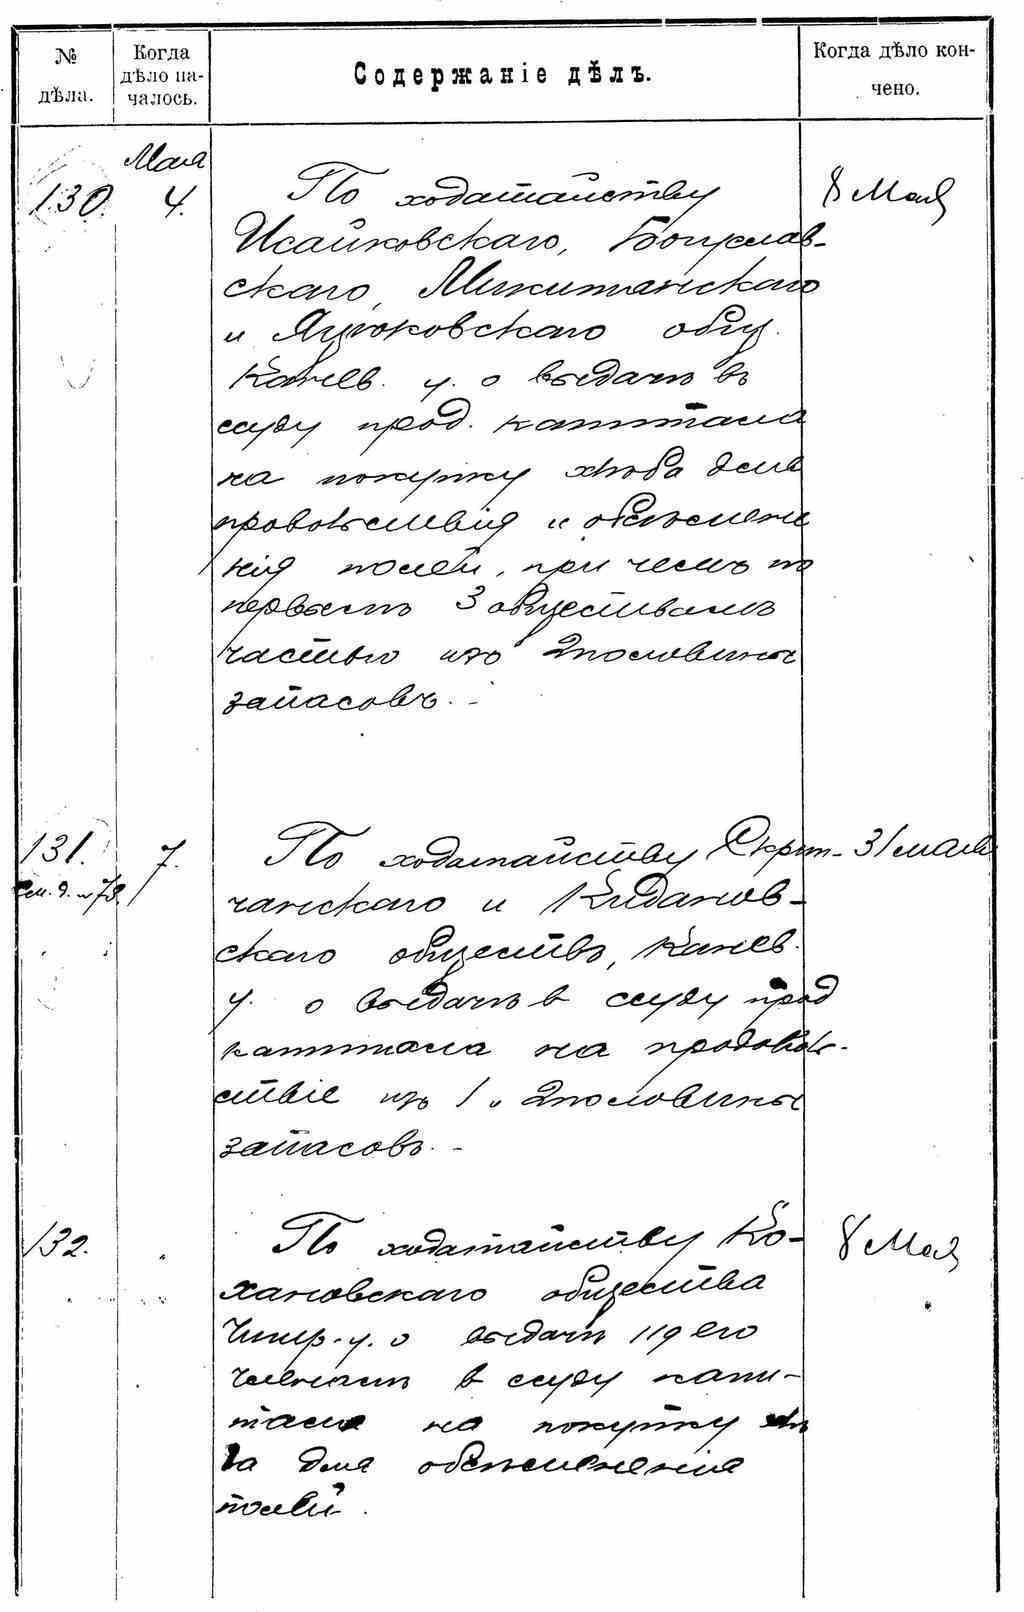 № дѣла.
Когда дѣло началось.
Содержаніе дѣлъ.
Когда дѣло кончено.
Мая
130. 4. По ходатайству 8 Мая
Исайковскаго, Богуслав-
скаго, Микитянскаго
и Яцюковскаго общ.
Канев. у. о выдачѣ въ
ссуду прод. капитала
на покупку хлѣба для
продовольствія и обсѣмене
нія полей, при чемъ по
первымъ 3 обществамъ
частью изъ 2 половины
запасовъ. -
131. 7. По ходатайству Скрип- 31 мая
см. д. № 78.
чанскаго и Кидановскаго
скаго обществъ, Канев.
у. о выдачѣ в ссуду прод
капитала на продоволь-
ствіе изъ 1 и 2 половины
запасовъ. -
132. " По ходатайству Ко- 8 Мая
хановскаго общества
Чигир. у. о выдачѣ 119 его
членамъ в ссуду капи-
тала на покупку хлѣ
ба для обсѣмененія
полей.